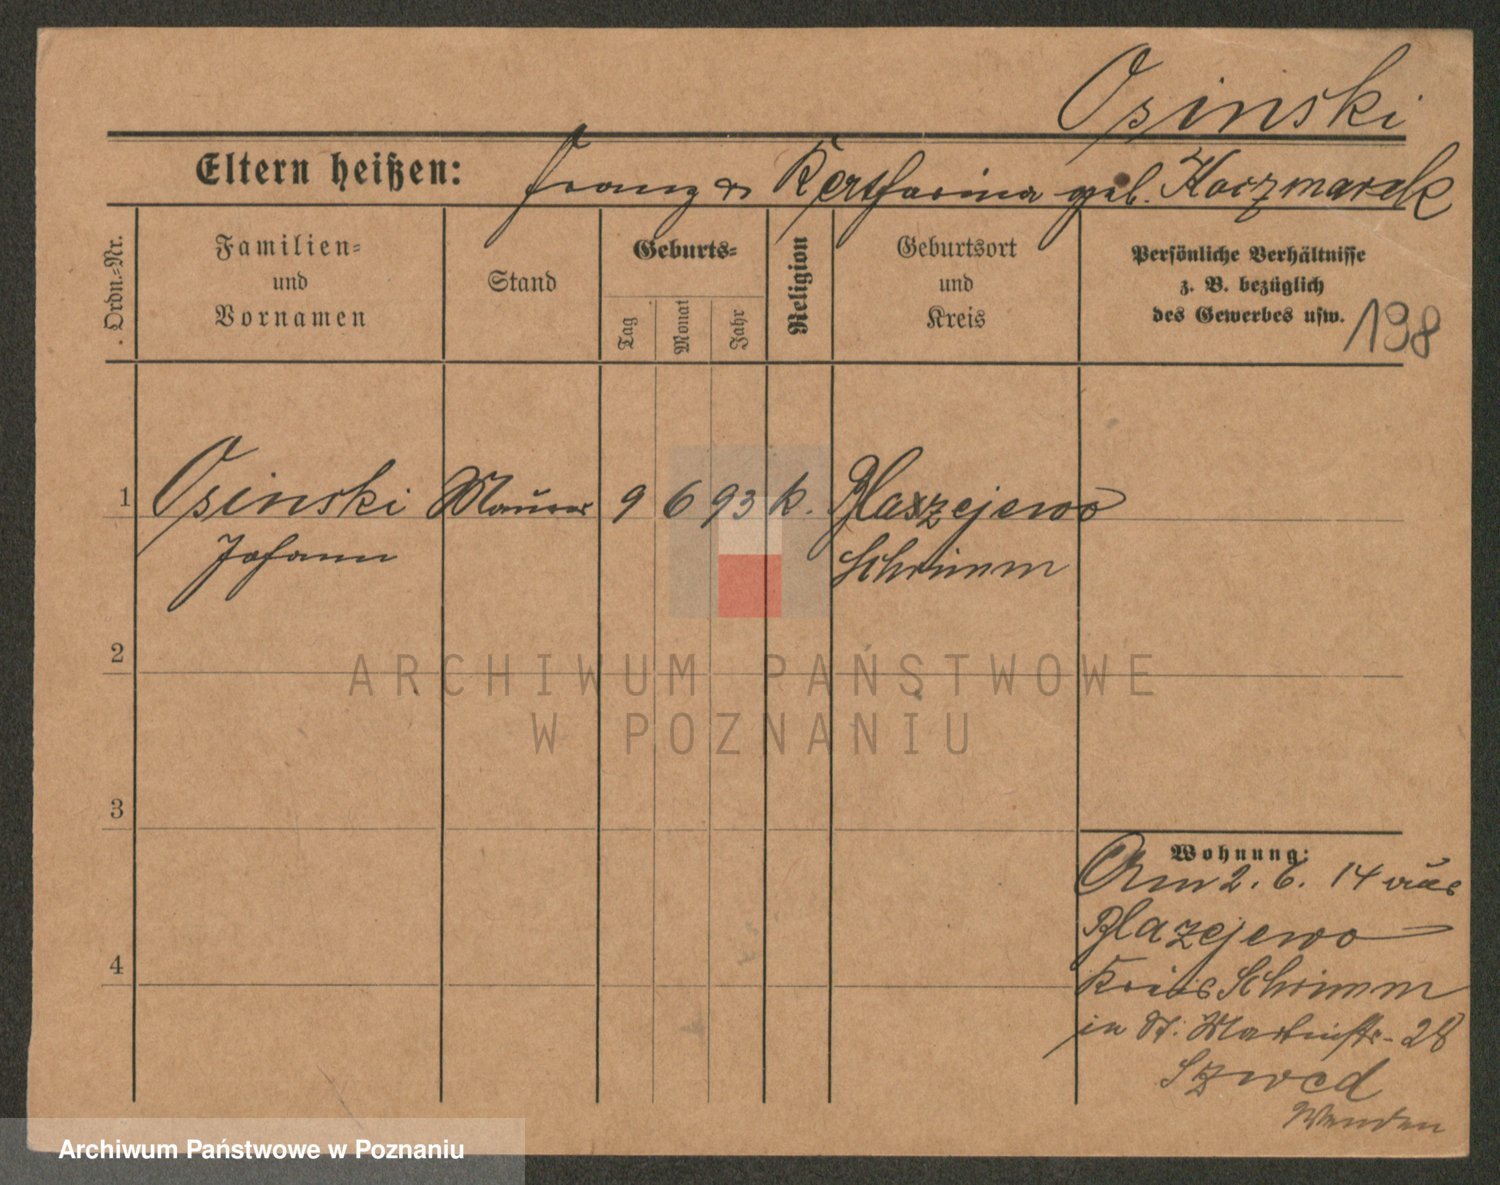 Osinski
Eltern heißen: Franz u Katharina geb. Kaczmarek
Ordn.=Nr.
Familien=
und
Vornamen
Stand
Geburts=
Tag
Monat
Jahr
Religion
Geburtsort
und
Kreis
Persönliche Verhältnisse
z. B. bezüglich
des Gewerbes usw.
198
1 Osinski Maurer 9 6 93 k. Blaszejewo
Johann Schrimm
2
3
4
Wohnung:
Am 2. 6. 14 aus
Blazejewo
Kreis Schrimm
in St. Martinstr. 28
Szwed
ARCHIWUM PAŃSTWOWE
W POZNANIU
Archiwum Państwowe w Poznaniu